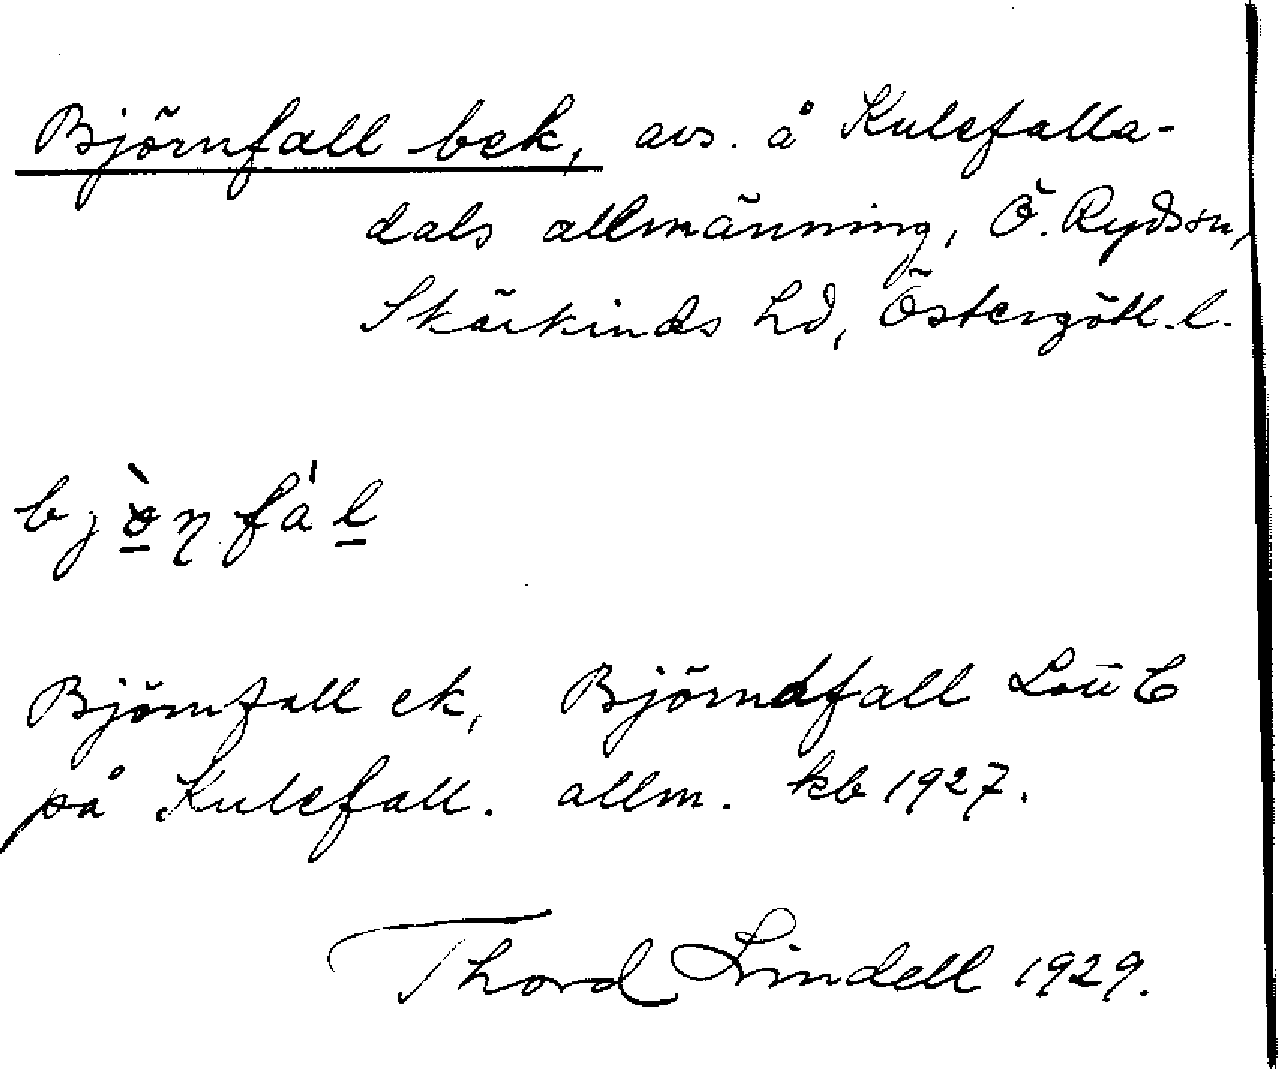 Björnfall bek, avs. å Kulefalla-
dals allmänning, Ö. Rydsn,
Skärkinds hd, Östergötl. l.
bjònfál
Björnfall ek, Björndfall
på Kulefall. allm. kb 1927.
Thord Lindell 1929.